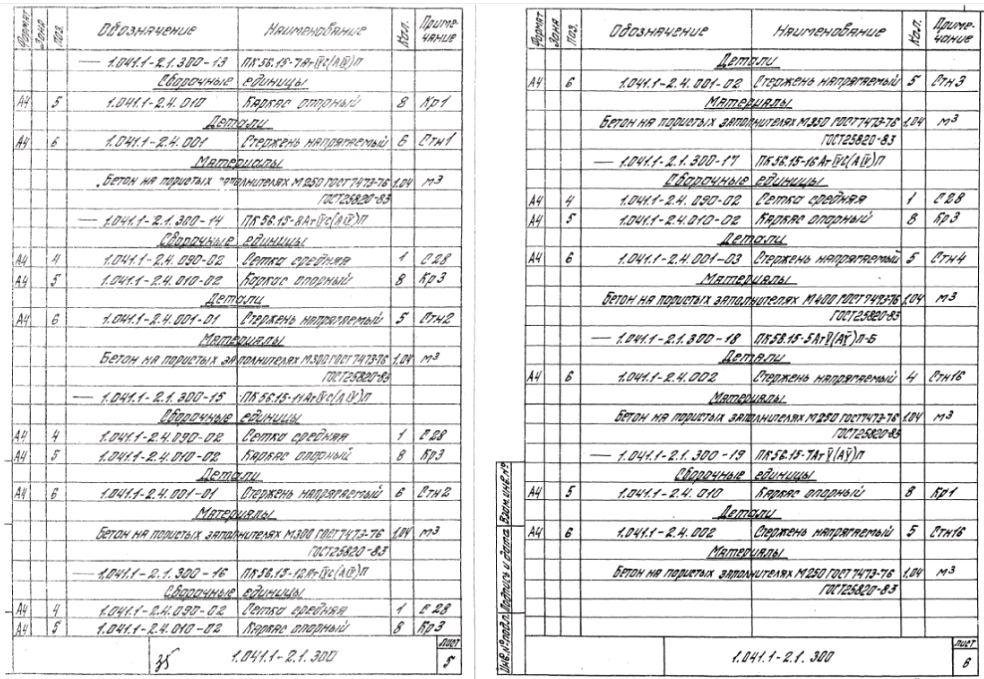 Формат Зона Поз. Обозначение Наименование Кол. Приме-чание
— 1.041.1-2.1.300-13 ПК56.15-7АтIVС(АIV)П
Сборочные единицы
А4 5 1.041.1-2.4.010 Каркас опорный 8 Кр1
Детали
А4 6 1.041.1-2.4.001 Стержень напрягаемый 6 Стн1
Материалы
Бетон на пористых заполнителях М250 ГОСТ7473-76 1,04 м3
ГОСТ25820-83
— 1.041.1-2.1.300-14 ПК56.15-8АтIVС(АIV)П
Сборочные единицы
А4 4 1.041.1-2.4.090-02 Сетка средняя 1 С28
А4 5 1.041.1-2.4.010-02 Каркас опорный 8 Кр3
Детали
А4 6 1.041.1-2.4.001-01 Стержень напрягаемый 5 Стн2
Материалы
Бетон на пористых заполнителях М300 ГОСТ7473-76 1,04 м3
ГОСТ25820-83
— 1.041.1-2.1.300-15 ПК56.15-11АтIVС(АIV)П
Сборочные единицы
А4 4 1.041.1-2.4.090-02 Сетка средняя 1 С28
А4 5 1.041.1-2.4.010-02 Каркас опорный 8 Кр3
Детали
А4 6 1.041.1-2.4.001-01 Стержень напрягаемый 6 Стн2
Материалы
Бетон на пористых заполнителях М300 ГОСТ7473-76 1,04 м3
ГОСТ25820-83
— 1.041.1-2.1.300-16 ПК56.15-12АтIVС(АIV)П
Сборочные единицы
А4 4 1.041.1-2.4.090-02 Сетка средняя 1 С28
А4 5 1.041.1-2.4.010-02 Каркас опорный 8 Кр3
35 1.041.1-2.1.300 Лист 5
Формат Зона Поз. Обозначение Наименование Кол. Приме-чание
Детали
А4 6 1.041.1-2.4.001-02 Стержень напрягаемый 5 Стн3
Материалы
Бетон на пористых заполнителях М350 ГОСТ7473-76 1,04 м3
ГОСТ25820-83
— 1.041.1-2.1.300-17 ПК56.15-16АтIVС(АIV)П
Сборочные единицы
А4 4 1.041.1-2.4.090-02 Сетка средняя 1 С28
А4 5 1.041.1-2.4.010-02 Каркас опорный 8 Кр3
Детали
А4 6 1.041.1-2.4.001-03 Стержень напрягаемый 5 Стн4
Материалы
Бетон на пористых заполнителях М400 ГОСТ7473-76 1,04 м3
ГОСТ25820-83
— 1.041.1-2.1.300-18 ПК56.15-5АтV(АV)П-Б
Детали
А4 6 1.041.1-2.4.002 Стержень напрягаемый 4 Стн16
Материалы
Бетон на пористых заполнителях М250 ГОСТ7473-76 1,04 м3
ГОСТ25820-83
— 1.041.1-2.1.300-19 ПК56.15-7АтV(АV)П
Сборочные единицы
А4 5 1.041.1-2.4.010 Каркас опорный 8 Кр1
Детали
А4 6 1.041.1-2.4.002 Стержень напрягаемый 5 Стн16
Материалы
Бетон на пористых заполнителях М250 ГОСТ7473-76 1,04 м3
ГОСТ25820-83
Инв.№подл. Подпись и дата Взам.инв.№
1.041.1-2.1.300 Лист 6